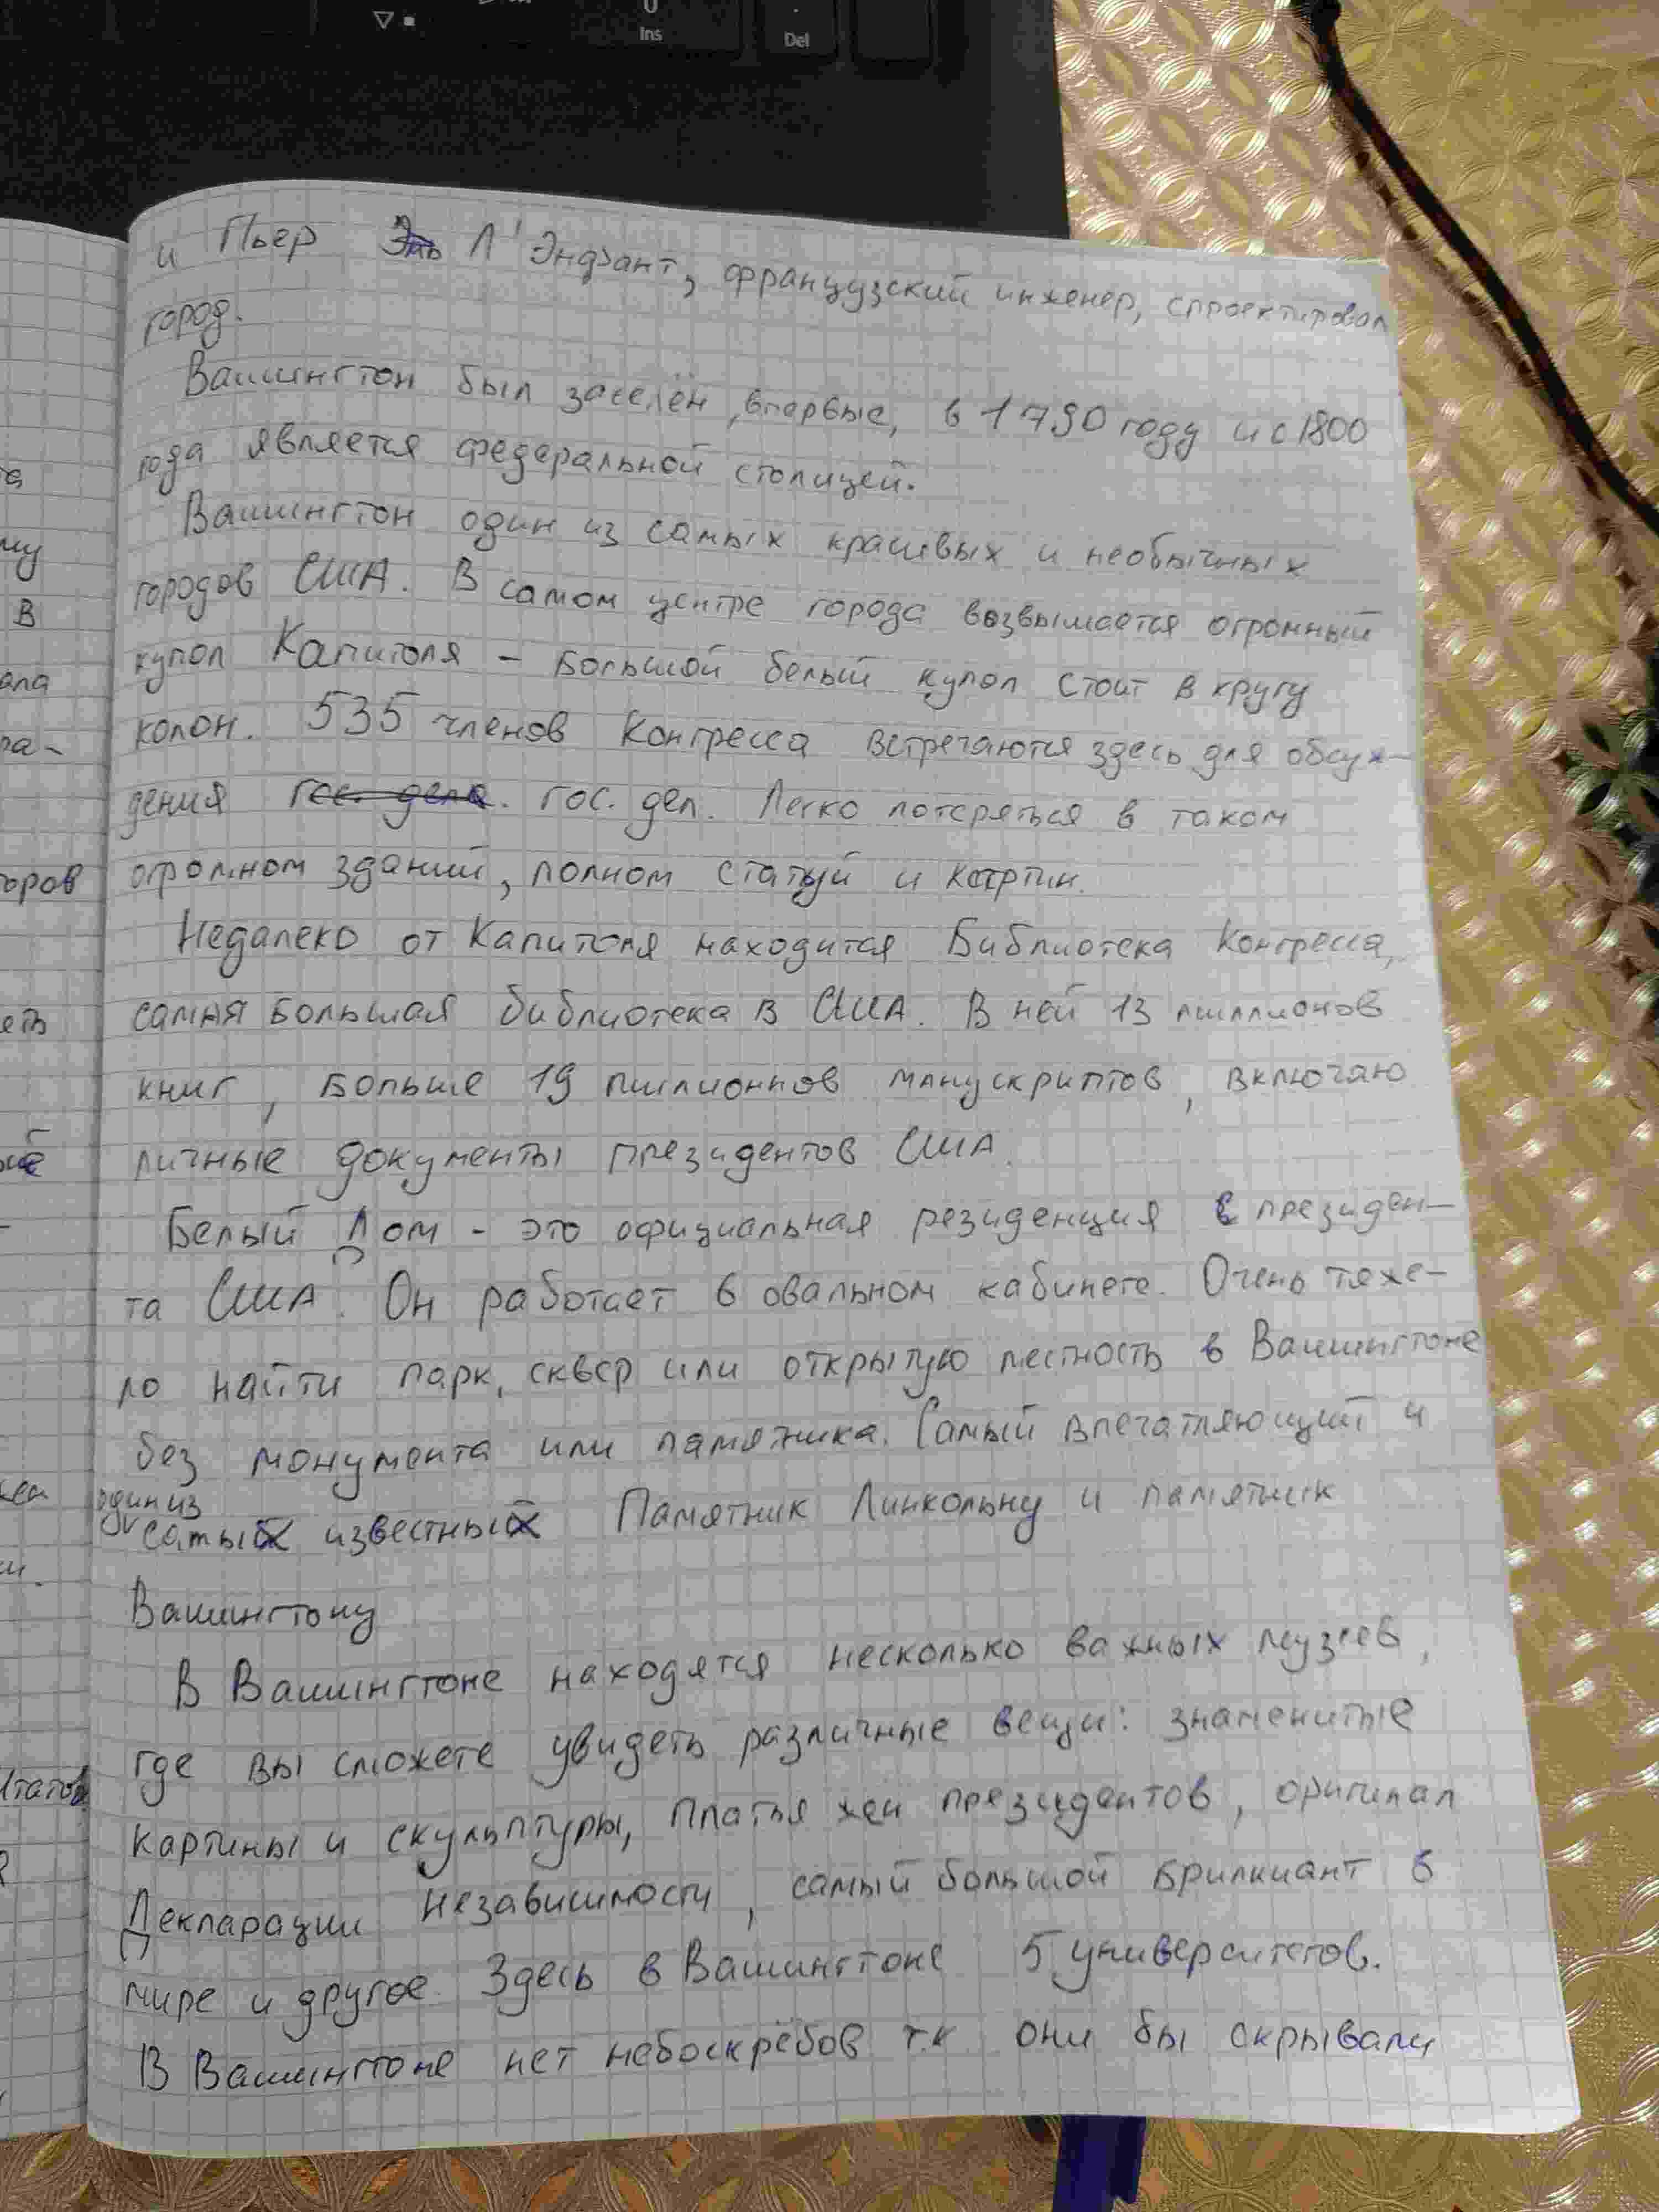 Ins
Del
и Пьер Энь Л'Энфант, французский инженер, спроектировал
город.
Вашингтон был заселён, впервые, в 1790 году и с 1800
года является федеральной столицей.
Вашингтон один из самых красивых и необычных
городов США. В самом центре города возвышается огромный
купол Капитоля – Большой белый купол стоит в кругу
колон. 535 членов Конгресса встречаются здесь для обсуж-
дения гос. дела. гос. дел. Легко потеряться в таком
огромном зданий, полном статуй и картин.
Недалеко от Капитоля находится Библиотека Конгресса,
самая Большая библиотека в США. В ней 13 миллионов
книг, Больше 19 милионнов манускриптов, включаю
личные документы президентов США.
Белый Дом - это официальная резиденция с президен-
та США. Он работает в овальном кабинете. Очень тяже-
ло найти парк, сквер или открытую местность в Вашингтоне
без монумента или памятника. Самый впечатляющий и
один из
самых известных Памятник Линкольну и памятник
Вашингтону
В Вашингтоне находятся несколько важных музеев,
где вы сможете увидеть различные вещи: знаменитые
картины и скульптуры, платья жен президентов, оригинал
Декларации Независимости, самый большой Брилиант в
мире и другое. Здесь в Вашингтоне 5 университетов.
В Вашингтоне нет небоскрёбов т.к они бы скрывали
та
му
В
ала
ра-
торов
еть
жен
и.
Штатов